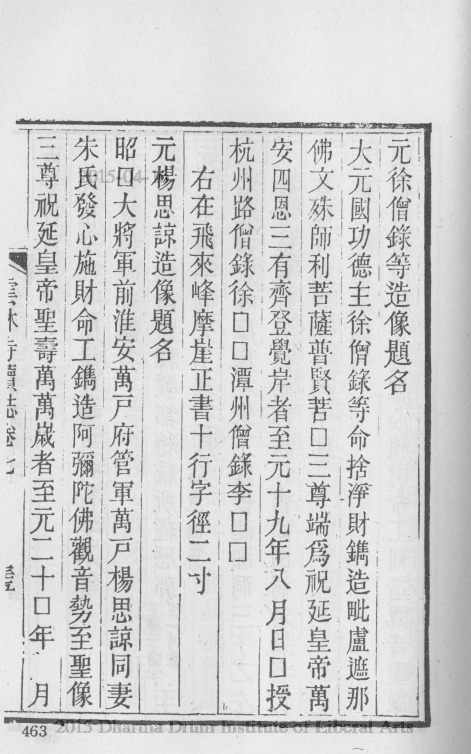 元徐僧錄等造像題名
大元國功德主徐僧錄等命捨淨財鐫造毗盧遮那
佛文殊師利菩薩普賢菩□三尊端爲祝延皇帝萬
安四恩三有齊登覺岸者至元十九年八月日□授
杭州路僧錄徐□□潭州僧錄李□□
右在飛來峰摩崖正書十行字徑二寸
元楊思諒造像題名
昭□大將軍前淮安萬戸府管軍萬戸楊思諒同妻
朱氏發心施財命工鐫造阿彌陀佛觀音勢至聖像
三尊祝延皇帝聖壽萬萬歲者至元二十□年 月
雲林寺續志卷七
463
2015 Dharma Drum Institute of Liberal Arts